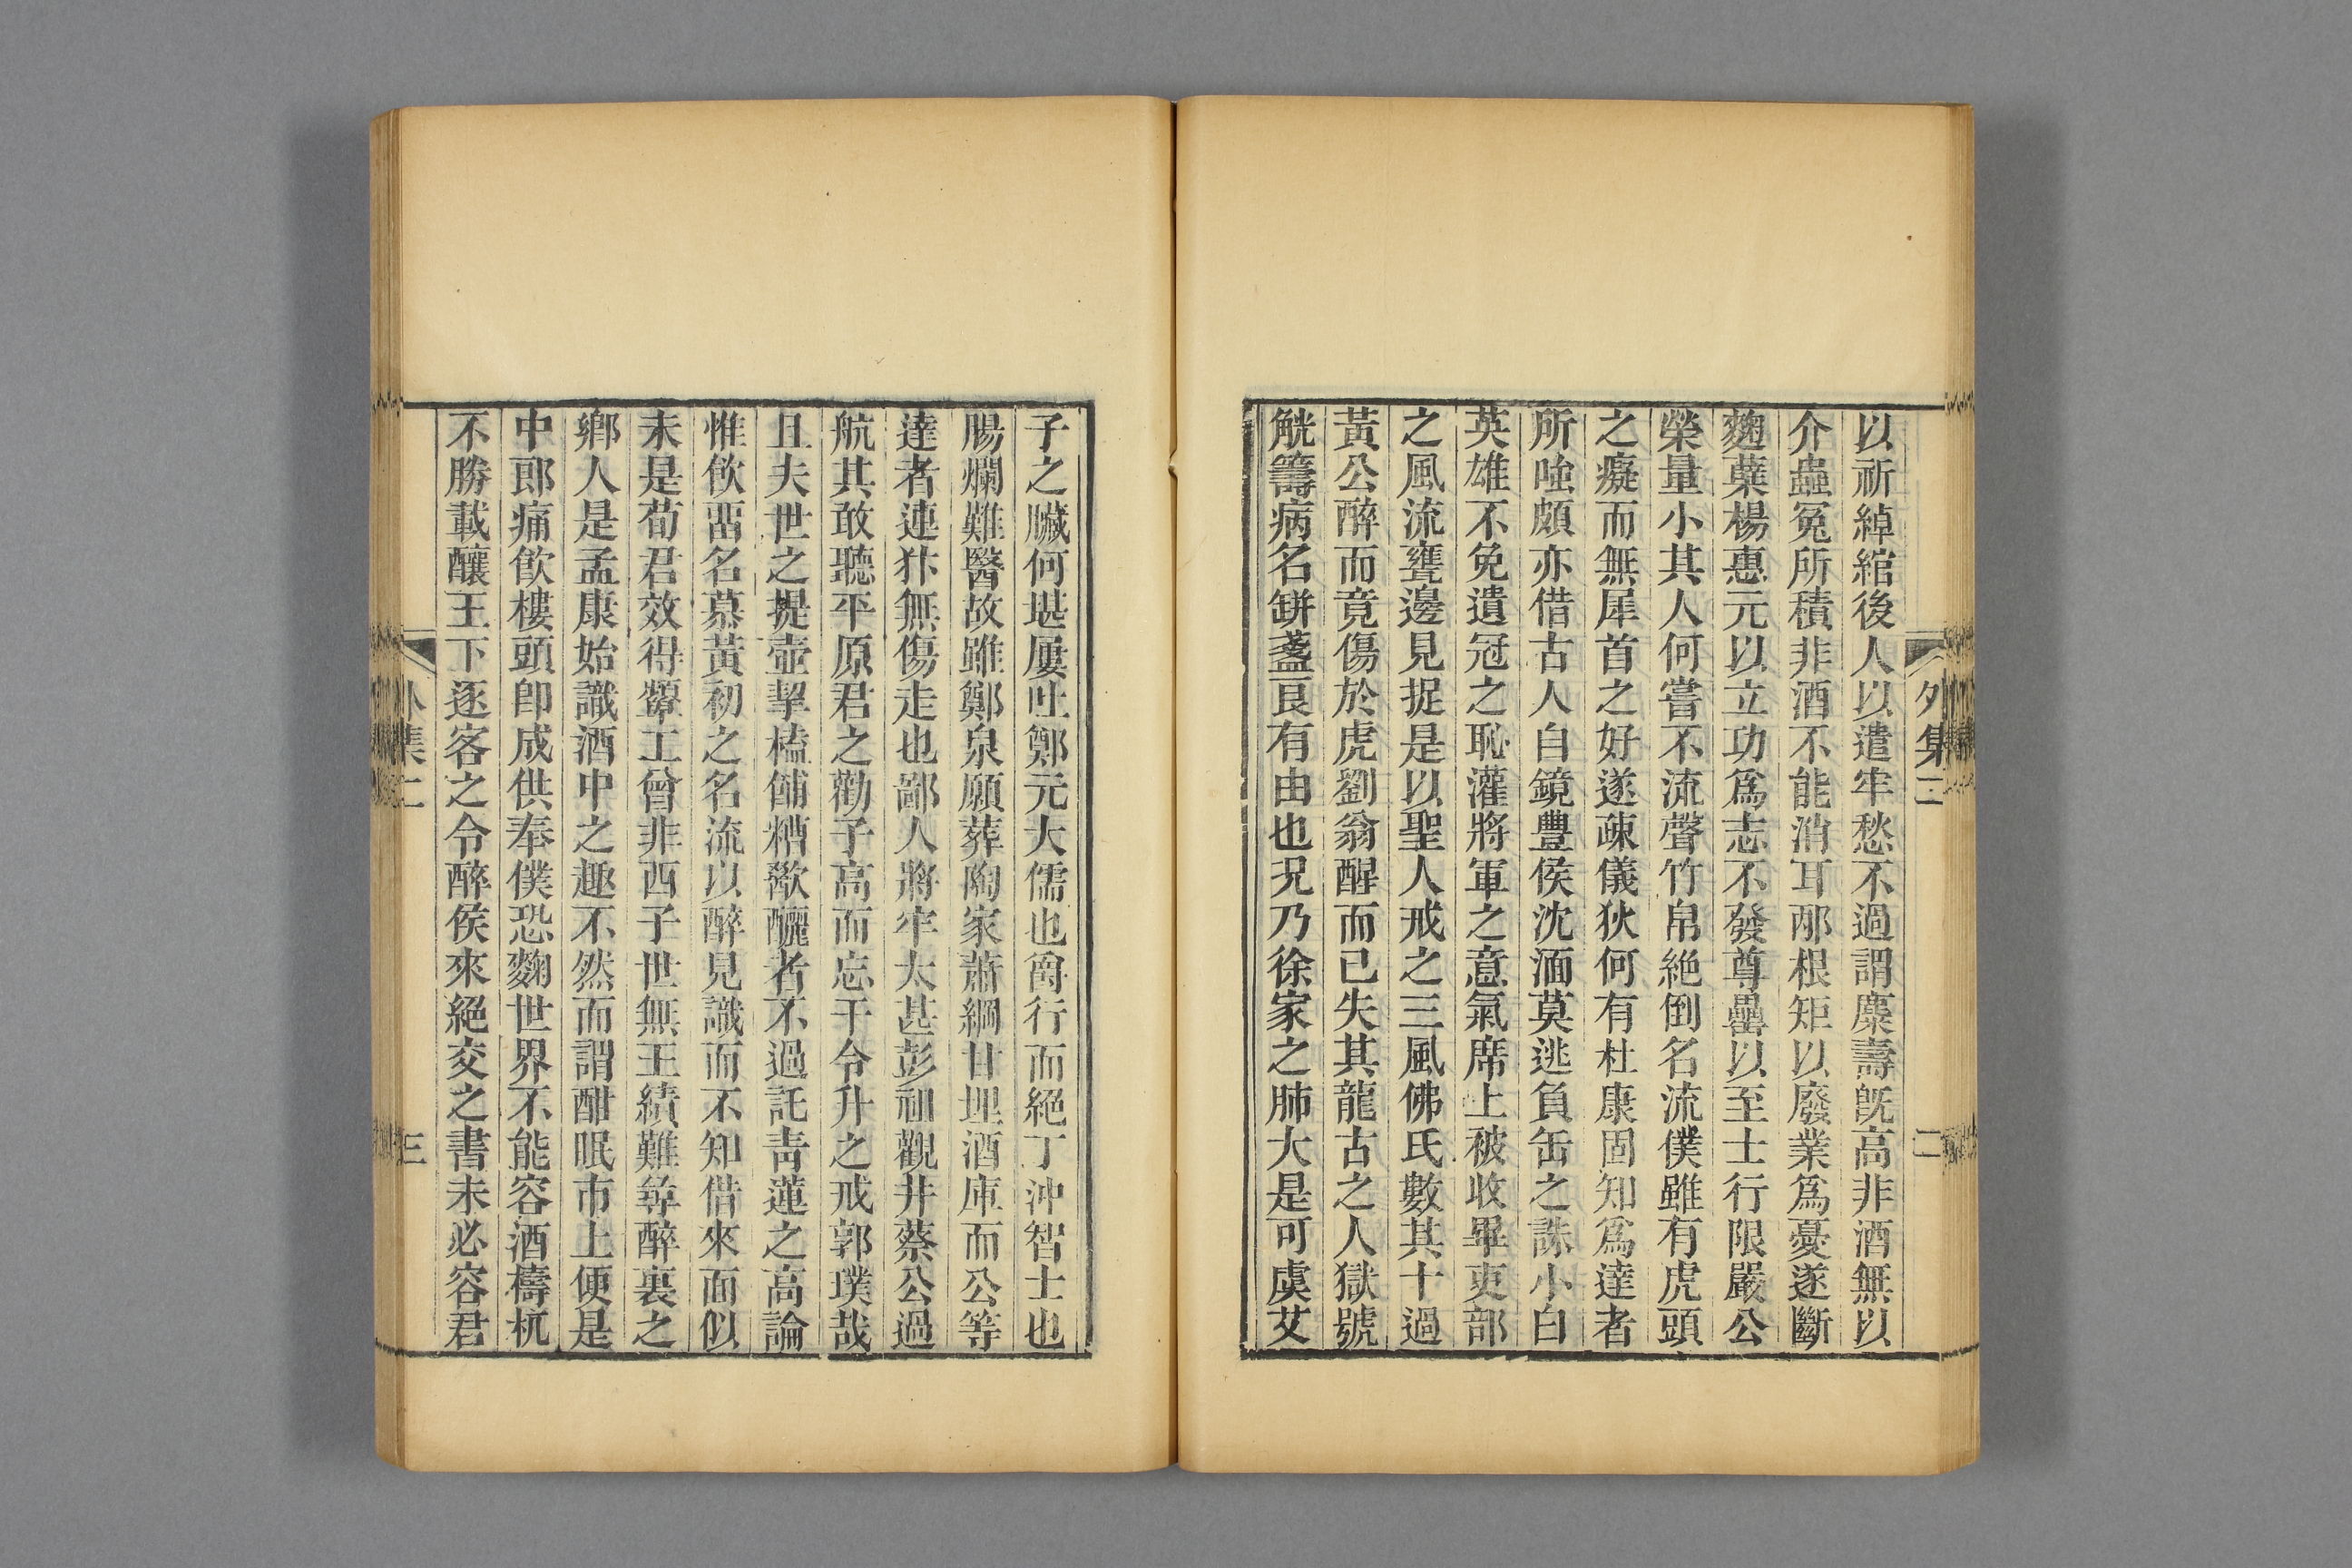 外集二
二
以祈綽綰後人以遣牢愁不過謂麋壽旣高非酒無以
介蟲冤所積非酒不能消耳邴根矩以廢業爲憂遂斷
麴蘗楊惠元以立功爲志不發尊罍以至士行限嚴公
榮量小其人何嘗不流聲竹帛絶倒名流僕雖有虎頭
之癡而無犀首之好遂疎儀狄何有杜康固知爲達者
所嗤頗亦借古人自鏡豐侯沈湎莫逃負缶之誅小白
英雄不免遺冠之恥灌將軍之意氣席上被收畢吏部
之風流甕邊見捉是以聖人戒之三風佛氏數其十過
黃公醉而竟傷於虎劉翁醒而已失其龍古之人獄號
觥籌病名缾盞良有由也况乃徐家之肺大是可虞艾
子之臟何堪屢吐鄭元大儒也酓行而絶丁沖智士也
腸爛難醫故雖鄭泉願葬陶家蕭綱甘埋酒庫而公等
達者連犿無傷走也鄙人將牢太甚彭祖觀井蔡公過
航其敢聽平原君之勸子高而忘干令升之戒郭璞哉
且夫世之提壺挈榼餔糟歠醨者不過託靑蓮之高論
惟飮畱名慕黃初之名流以醉見識而不知借來面似
未是荀君效得顰工曾非西子世無王績難尋醉裏之
鄉人是孟康始識酒中之趣不然而謂酣眠市上便是
中郎痛飮樓頭卽成供奉僕恐麴世界不能容酒檮杌
不勝載釀王下逐客之令醉侯來絶交之書未必容君
外集二
三